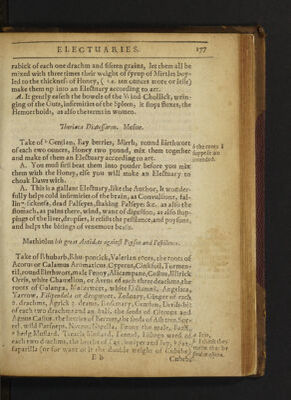 ELECTUARIES. 177
rabick of each one drachm and fifteen grains, let them all be
mixed with three times their weight of syrup of Mirtles boy-
led to the thickness of Honey, ( i.e. ten ounces more or lesse)
make them up into an Electuary according to art.
A. It gently easeth the bowels of the Wind Chollick, wrin-
ging of the Guts, infirmities of the Spleen, it stops fluxes, the
Hemorrhoids, as also the terms in women.
Theriaca Diatessaron. Mesue.
Take of Gentian, Bay berries, Mirrh, round Birthwort
of each two ounces, Honey two pound, mix them together
and make of them an Electuary according to art.
the roots I
suppose are
intended.
A. You must first beat them into pouder before you mix
them with the Honey, else you will make an Electuary to
choak Daws with.
A. This is a gallant Electuary, like the Author, It wonder-
fully helps cold infirmities of the brain, as Convulsions, fal-
ling-sickness, dead Palseyes, shaking Palseyes &c. as also the
stomach, as pains there, wind, want of digestion, as also stop-
pings of the liver, dropsies, it resists the pestilence, and poysons,
and helps the bitings of venemous beasts.
Matthiolus his great Antidote against Poyson and Pestilence.
Take of Rhubarb, Rhapontick, Valerian roots, the roots of
Acorus or Calamus Aromaticus, Cyperus, Cinkfoil, Tormen-
til, round Birthwort, male Peony, Alicampane, Costus, Illirick
Orris, white Chamelion, or Avens of each three drachms, the
roots of Galanga, Masterwort, white Dictamni, Angelica,
Yarrow, Filipendula or dropwort, Zedoary, Ginger of each
2. drachms, Agrick 3. drams, Rosemary, Gentian, Devils-bit
of each two drachms and an half, the seeds of Citrons and
Agnus Castus, the berries of Kermes, the seeds of Ash tree, Sor-
rel, wild Parsneps, Navew, Nigella, Peony the male, Basil,
hedg Mustard, Treacle Mustard, Fennel, Bishops weed of
each two drachms, the berries of Bay, Juniper and Ivy,
saparilla (or for want of it the double weight of Cubebs)
I think they
mean that he
B b
Cubebs,